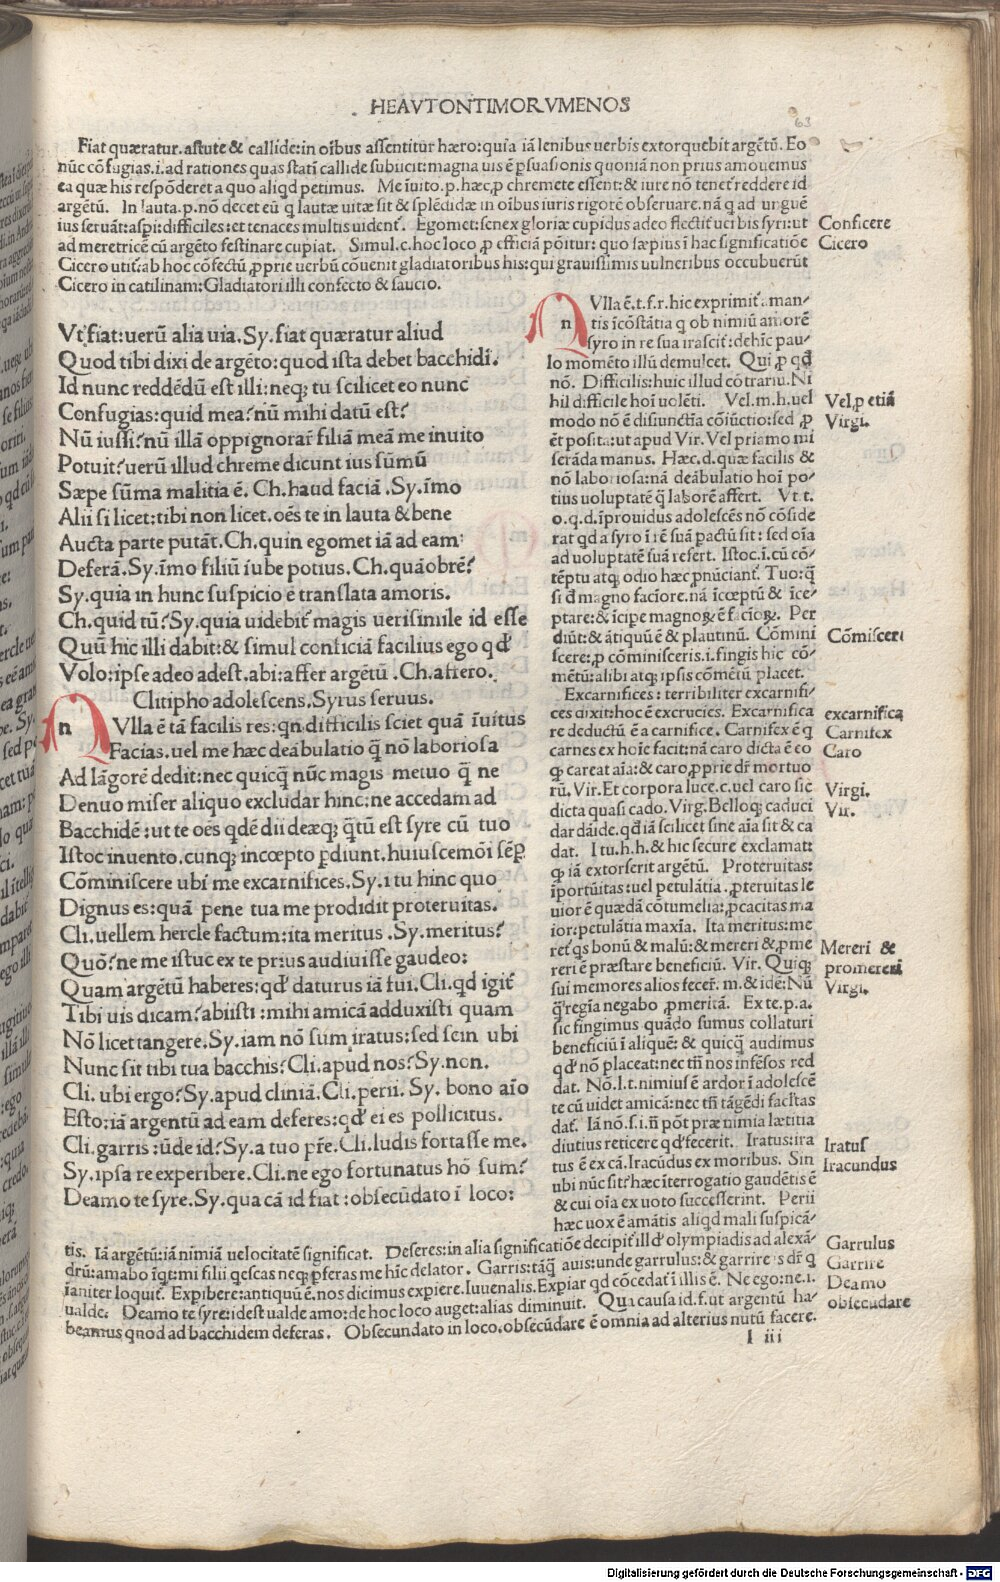 HEAVTONTIMORVMENOS
63
Fiat quæratur. astute & callide: in oĩbus assentitur hæro: quia iã lenibus uerbis extorquebit argẽtũ. Eo
nũc cõfugias. i. ad rationes quas statĩ callide subiicit: magna uis ẽ ꝑsuasionis quoniã non prius amouemus
ea quæ his respõderet a quo aliqd petimus. Me ĩuito. p. hæc, ꝓ chremete essent: & iure nõ tenet reddere id
argẽtũ. In lauta. p. nõ decet eũ q lautæ uitæ sit & splẽdidæ in oĩbus iuris rigorẽ obseruare. nã q ad unguẽ
ius seruãt: aspi: difficiles: et tenaces multis uident. Egomet: senex gloriæ cupidus adeo flectit uerbis syri: ut
ad meretricẽ cũ argẽto festinare cupiat. Simul. c. hoc loco ꝓ efficiã põitur: quo sæpius ĩ hac significatiõe
Cicero utit: ab hoc cõfectũ ꝓprie uerbũ cõuenit gladiatoribus his: qui grauissimis uulneribus occubuerũt
Cicero in catilinam: Gladiatori illi confecto & saucio.
Conficere
Cicero
Vt fiat: uerũ alia uia. Sy. fiat quæratur aliud
Quod tibi dixi de argẽto: quod ista debet bacchidi.
Id nunc reddẽdũ est illi: neq; tu scilicet eo nunc
Confugias: quid mea? nũ mihi datũ est?
Nũ iussi? nũ illã oppignorar filiã meã me inuito
Potuit? uerũ illud chreme dicunt ius sũmũ
Sæpe sũma malitia ẽ. Ch. haud faciã. Sy. ĩmo
Alii si licet: tibi non licet. oẽs te in lauta & bene
Aucta parte putãt. Ch. quin egomet iã ad eam:
Deferã. Sy. ĩmo filiũ iube potius. Ch. quãobrẽ?
Sy. quia in hunc suspicio ẽ translata amoris.
Ch. quid tũ? Sy. quia uidebit magis uerisimile id esse
Quũ hic illi dabit: & simul conficiã facilius ego qd
Volo: ipse adeo adest. abi: affer argẽtũ. Ch. affero.
Clitipho adolescens. Syrus seruus.
n VLla ẽ tã facilis res: qn difficilis sciet quã ĩuitus
Facias. uel me hæc deãbulatio q̃ nõ laboriosa
Ad lãgorẽ dedit: nec quicq̃ nũc magis metuo q̃ ne
Denuo miser aliquo excludar hinc: ne accedam ad
Bacchidẽ: ut te oẽs qdẽ dii deæq; q̃tũ est syre cũ tuo
Istoc inuento. cunq; incœpto ꝑdiunt. huiuscemõi sẽꝑ
Cõminiscere ubi me excarnifices. Sy. i tu hinc quo
Dignus es: quã pene tua me prodidit proteruitas.
Cli. uellem hercle factum: ita meritus. Sy. meritus?
Quõ? ne me istuc ex te prius audiuisse gaudeo:
Quam argẽtũ haberes: qd daturus iã fui. Cli. qd igit
Tibi uis dicam? abiisti: mihi amicã adduxisti quam
Nõ licet tangere. Sy. iam nõ sum iratus: sed scin ubi
Nunc sit tibi tua bacchis? Cli. apud nos? Sy. non.
Cli. ubi ergo? Sy. apud cliniã. Cli. perii. Sy. bono aĩo
Esto: iã argentũ ad eam deferes: qd ei es pollicitus.
Cli. garris: ũde id? Sy. a tuo pr̃e. Cli. ludis fortasse me.
Sy. ipsa re experibere. Cli. ne ego fortunatus hõ sum?
Deamo te syre. Sy. qua cã id fiat: obsecũdato ĩ loco:
n VLla ẽ. t. f. r. hic exprimit aman-
tis ĩcõstãtia q ob nimiũ amorẽ
syro in re sua irascit: dehĩc pau-
lo momẽto illũ demulcet. Qui, ꝓ qd
nõ. Difficilis: huic illud cõtrariũ. Ni
hil difficile hoĩ uolẽti. Vel. m. h. uel
modo nõ ẽ disiunctĩa cõiũctio: sed, ꝓ
ẽt posita: ut apud Vir. Vel priamo mi
serãda manus. Hæc. d. quæ facilis &
nõ laboriosa: nã deãbulatio hoĩ po-
tius uoluptatẽ q̃ laborẽ affert. Vt. t.
o. q. d. ĩprouidus adolescẽs nõ cõside
rat qd a syro ĩ rẽ suã pactũ sit: sed oĩa
ad uoluptatẽ suã refert. Istoc. ĩ. cũ cõ-
tẽptu atq; odio hæc ꝓnũciant. Tuo: q̃
si d magno faciore. nã ĩcœptũ & ĩce-
ptare: & ĩcipe magnoꝝ ẽ facioꝝ. Per
diũt: & ãtiquũ ẽ & plautinũ. Cõmini
scere: ꝓ cõminisceris. i. fingis hic cõ-
mẽtũ: alibi atq; ipsis cõmẽtũ placet.
Excarnifices: terribiliter excarnifi-
ces dixit: hoc ẽ excrucies. Excarnifica
re deductũ ẽ a carnifice. Carnifex ẽ q
carnes ex hoĩe facit: nã caro dicta ẽ eo
q careat aĩa: & caro, ꝓprie dr̃ mortuo
rũ. Vir. Et corpora luce. c. uel caro sic
dicta quasi cado. Virg. Belloq; caduci
dardãidæ. qd iã scilicet sine aĩa sit & ca
dat. I tu. h. h. & hic secure exclamat:
q iã extorserit argẽtũ. Proteruitas:
ĩportũitas: uel petulãtia. ꝓteruitas le
uior ẽ quædã cõtumelia: ꝓcacitas ma
ior: petulãtia maxĩa. Ita meritus: me
ret qs bonũ & malũ: & mereri & ꝓme
reri ẽ præstare beneficiũ. Vir. Quiq;
sui memores alios fecer. m. & idẽ: Nũ
q̃ regĩa negabo ꝓmeritã. Ex te. p. a.
sic fingimus quãdo sumus collaturi
beneficiũ ĩ aliquẽ: & quicq̃ audimus
qd nõ placeat: nec tñ nos infẽsos red
dat. Nõ. l. t. nimius ẽ ardor ĩ adolescẽ
te cũ uidet amicã: nec tñ tãgẽdi facl̃tas
dat. Iã nõ. s. i. ñ põt præ nimia lætitia
diutius reticere qd fecerit. Iratus: ira
tus ẽ ex cã. Iracũdus ex moribus. Sin
ubi nũc sit? hæc ĩterrogatio gaudẽtis ẽ
& cui oĩa ex uoto successerint. Perii
hæc uox ẽ amãtis aliqd mali suspicã-
Vel, ꝓ etiã
Virgi.
Cõmisceri
excarnifica
Carnifex
Caro
Virgi.
Vir.
Mereri &
promereri
Virgi.
Iratus
Iracundus
tis. Iã argẽtũ: iã nimiã uelocitatẽ significat. Deferes: in alia significatiõe decipit ill'd olympiadis ad alexã-
drũ: amabo ĩqt: mi filii qescas neq; ꝓferas me hĩc delator. Garris: tãq̃ auis: unde garrulus: & garrire is dr̃ q
ĩaniter loquit. Expibere: antiquũ ẽ. nos dicimus expiere. Iuuenalis. Expiar qd cõcedat ĩ illis ẽ. Ne ego: ne. i.
ualde. Deamo te syre: idest ualde amo: de hoc loco auget: alias diminuit. Qua causa id. f. ut argentũ ha-
beamus quod ad bacchidem deferas. Obsecundato in loco. obsecũdare ẽ omnia ad alterius nutũ facere.
Garrulus
Garrire
Deamo
obsecudare
I iii
Digitalisierung gefördert durch die Deutsche Forschungsgemeinschaft - DFG